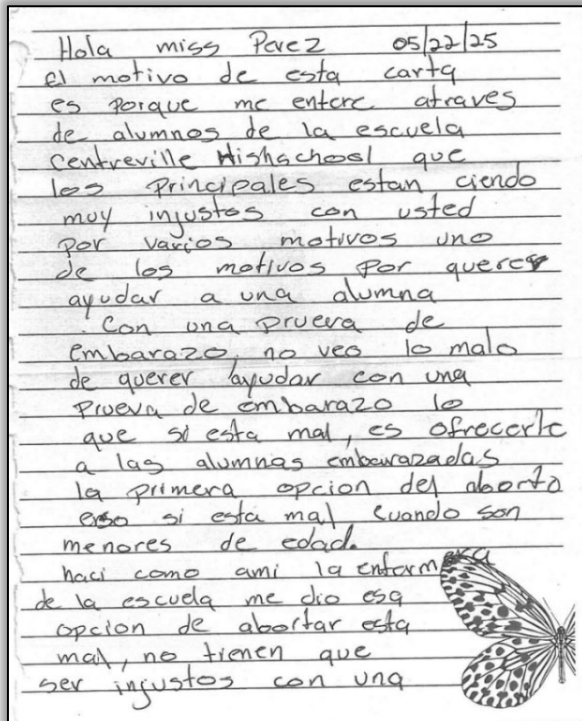 Hola miss Perez 05/22/25
el motivo de esta carta
es porque me entere atraves
de alumnos de la escuela
Centreville Hishschool que
los principales estan ciendo
muy injustos con usted
por varios motivos uno
de los motivos por querer
ayudar a una alumna
. Con una prueva de
embarazo, no veo lo malo
de querer ayudar con una
prueva de embarazo lo
que si esta mal, es ofrecerle
a las alumnas embarazadas
la primera opcion del aborto
eso si esta mal cuando son
menores de edad.
haci como ami la enfermera
de la escuela me dio esa
opcion de abortar esta
mal, no tienen que
ser injustos con una